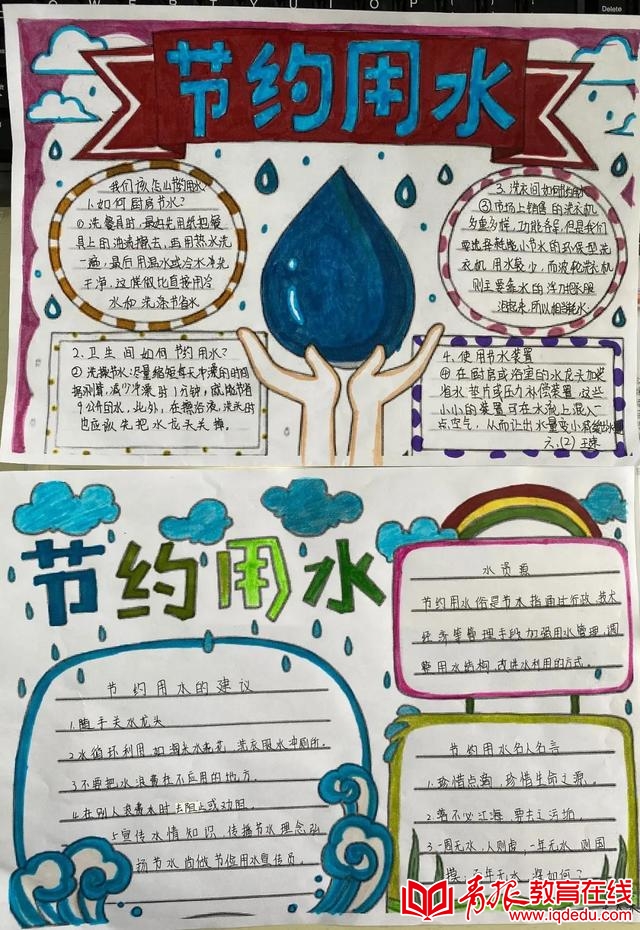 节约用水
我们该怎么节约用水
1.如何厨房节水?
①洗餐具时,最好先用纸把餐
具上的油渍擦去,再用热水洗
一遍,最后用温水或冷水冲洗
干净,这样做比直接用冷
水和洗涤节省水
3.洗衣间如何节约用水
③市场上销售的洗衣机
多种多样,功能各异,但是我们
要选择耗能小节水的环保型洗
衣机用水较少,而波轮洗衣机
则主要靠水的浮力将衣服
泡起来,所以相当耗水
2.卫生间如何节约用水?
②洗澡节水:尽量缩短每天冲澡的时间
据测算,减少冲澡时1分钟,就能节省
9公升的水,此外,在擦浴液,洗头时
也应该先把水龙头关掉。
4.使用节水装置
④在厨房或浴室的水龙头加装
省水垫片或压力补偿装置,这些
小小的装置可在水流上混入一
点空气,从而让出水量变小
六.(2)
节约用水
节约用水的建议
1.随手关水龙头
2.水循环利用,如淘米水浇花,洗衣服水冲厕所。
3.不要把水浪费在不应用的地方。
4.在别人浪费水时去阻止或劝阻。
5.宣传水情知识,传播节水理念弘
扬节水尚做节约用水宣传员。
水资源
节约用水俗是节水指通过行政、技术
经济等管理手段加强用水管理,调
整用水结构,改进水利用的方式。
节约用水名人名言
1.珍惜点滴,珍惜生命之源。
2.
3.一周无水,人则虚,一年无水,则国
年无水,将如何?
青报教育在线
www.iqdedu.com